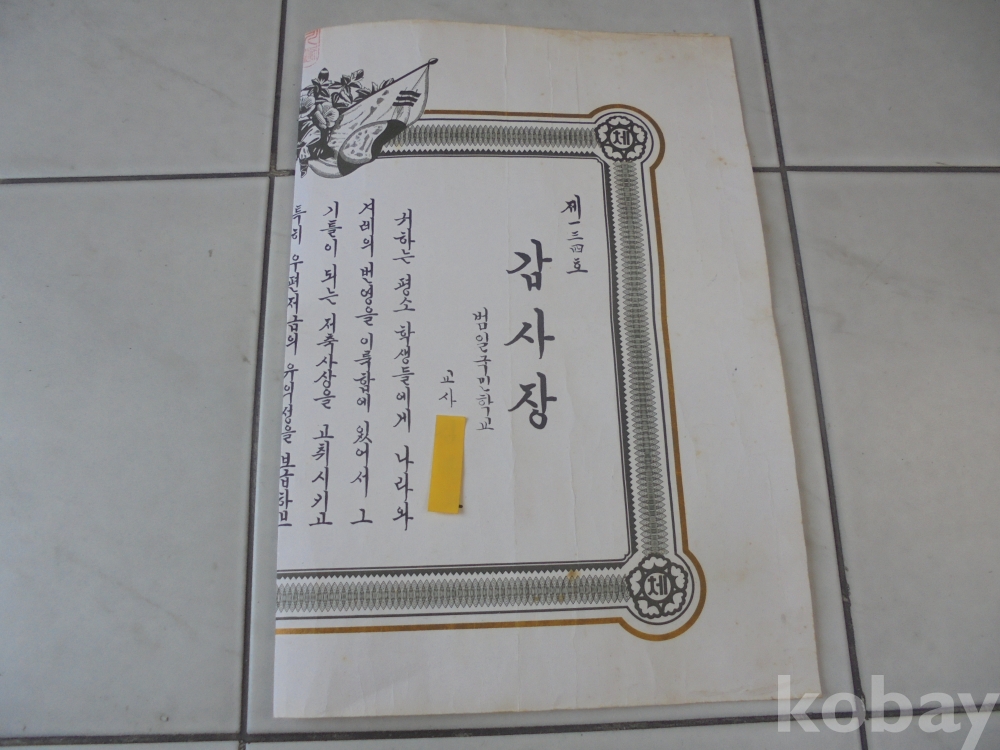 제一三四호
감사장
범일국민학교
교사
귀하는 평소 학생들에게 나라와
겨레의 번영을 이룩함에 있어서 그
기틀이 되는 저축사상을 고취시키고
특히 우편저금의 유의성을 보급하므
체
체
kobay